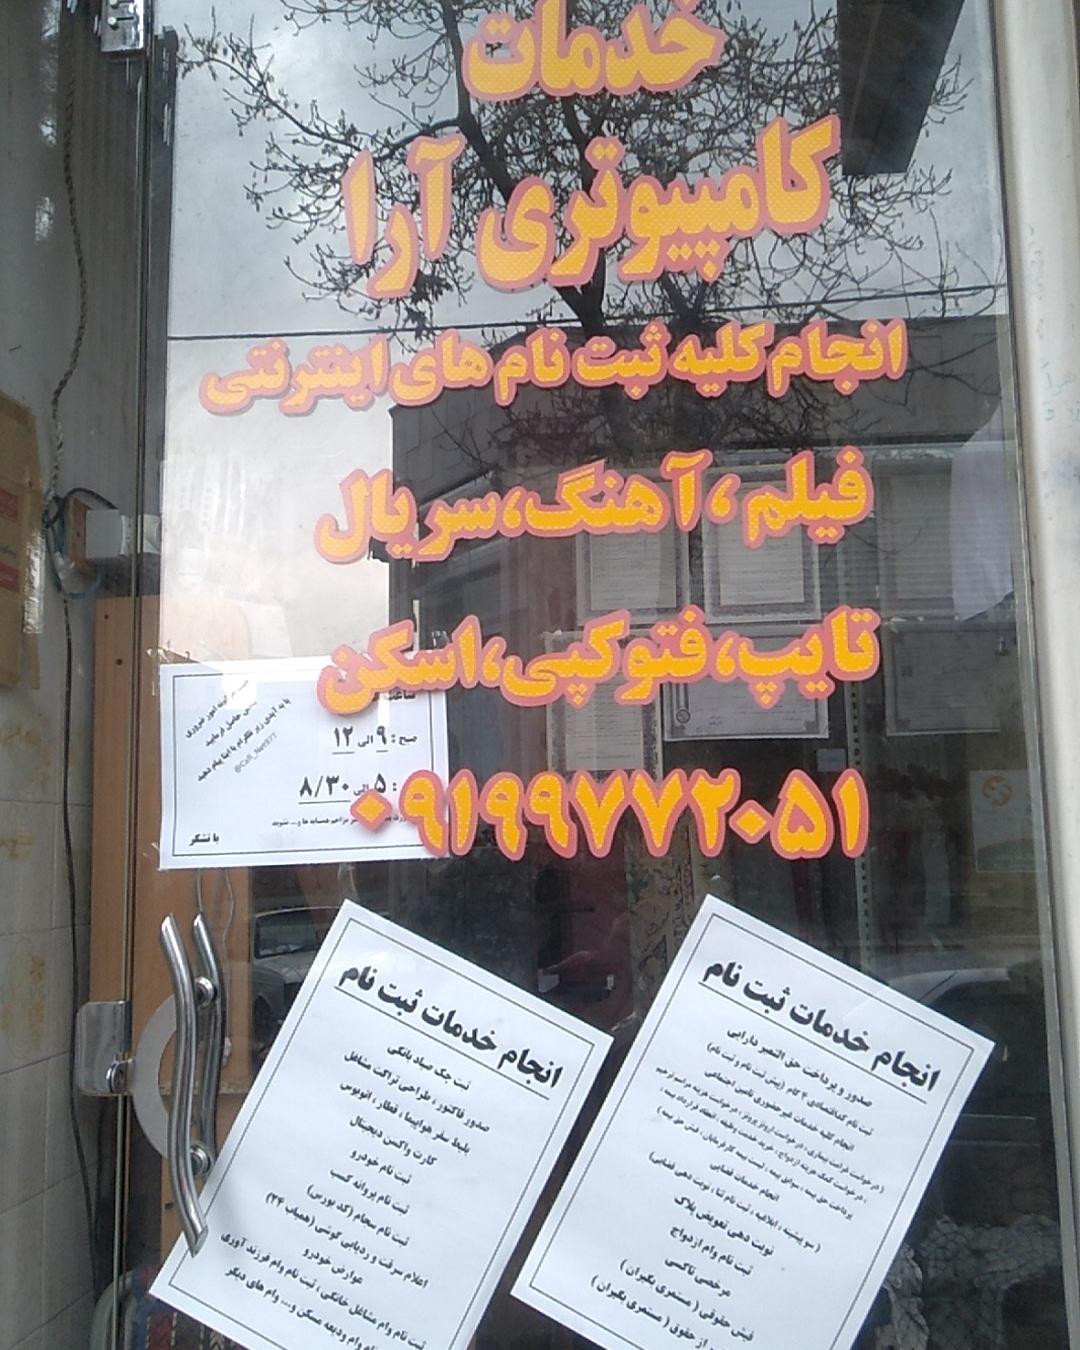 خدمات
کامپیوتری آرا
انجام کلیه ثبت نام های اینترنتی
فیلم ،آهنگ،سریال
تایپ،فتوکپی،اسکن
۰۹۱۹۹۷۷۲۰۵۱
صبح : ۹ الی ۱۲
: ۵ الی ۸/۳۰
با تشکر
انجام خدمات ثبت نام
صدور و پرداخت حق التمبر دارایی
ثبت نام کداقتصادی ۴ گام (پیش ثبت نام و ثبت نام)
انجام کلیه خدمات غیر حضوری تامین اجتماعی
انجام خدمات قضایی
( سو پیشینه ، ابلاغیه ، ثبت نام ثنا ، نوبت دهی قضایی)
نوبت دهی تعویض پلاک
ثبت نام وام ازدواج
مرخصی تاکسی
فیش حقوقی ( مستمری بگیران )
از حقوق ( مستمری بگیران )
انجام خدمات ثبت نام
ثبت چک صیاد بانکی
صدور فاکتور ، طراحی تراکت مشاغل
بلیط سفر هواپیما ، قطار ، اتوبوس
کارت واکسن دیجیتال
ثبت نام خودرو
ثبت نام پروانه کسب
ثبت نام سجام (کد بورس)
اعلام سرقت و ردیابی گوشی (همیاب ۲۴)
عوارض خودرو
ثبت نام وام مشاغل خانگی ، ثبت نام وام فرزند آوری
نام وام ودیعه مسکن و... وام های دیگر